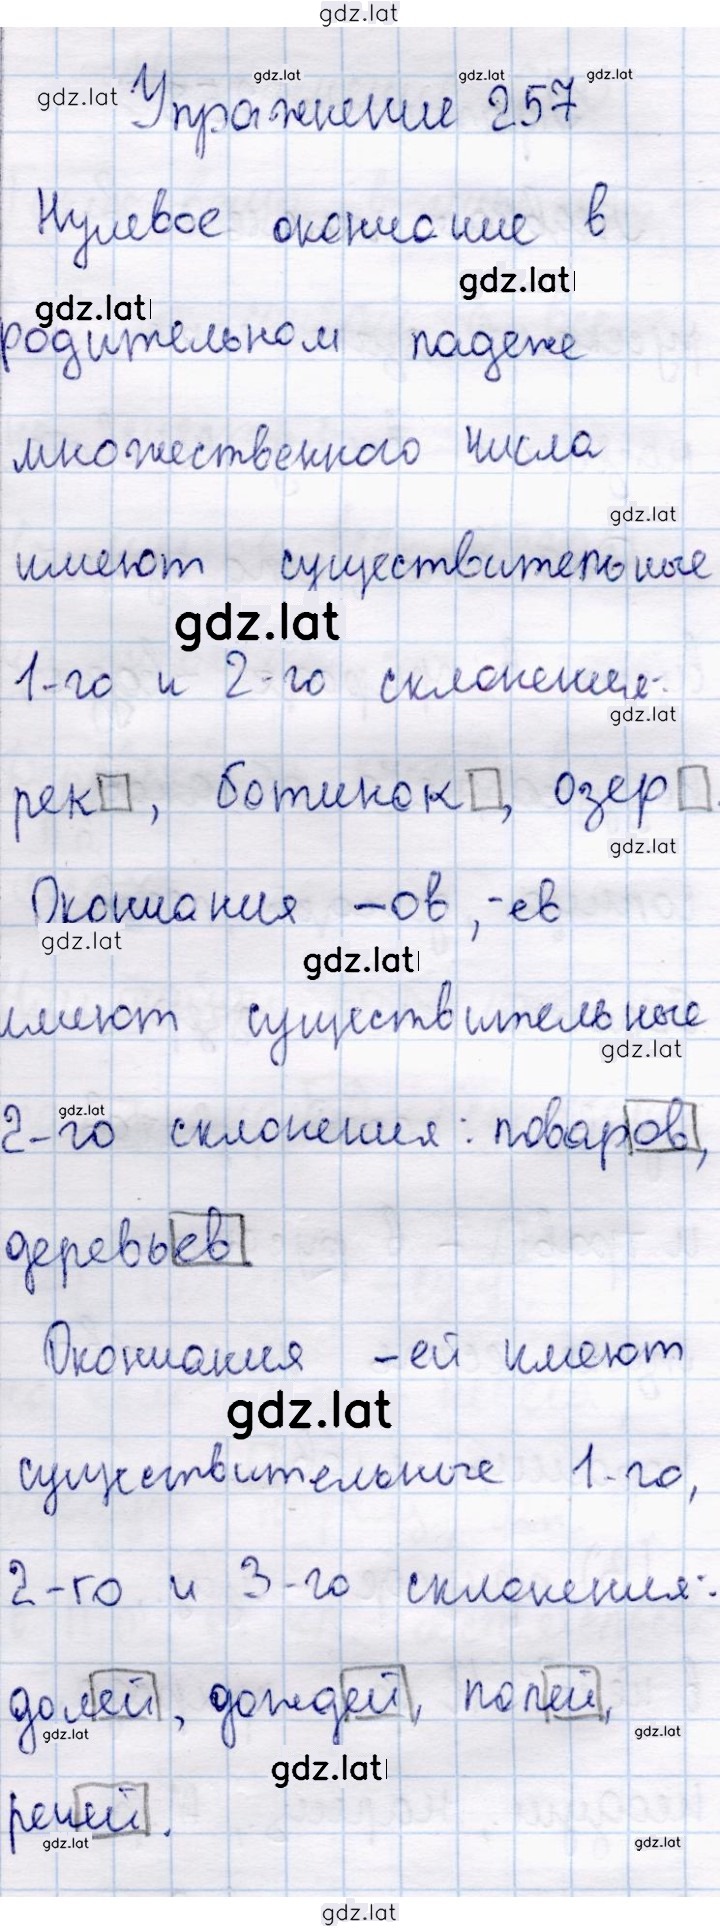 gdz.lat
gdz.lat gdz.lat gdz.lat gdz.lat
Упражнение 257
Нулевое окончание в
gdz.lat gdz.lat
родительном падеже
множественного числа
gdz.lat
имеют существительные
gdz.lat
1-го и 2-го склонения:
gdz.lat
рек□, ботинок□, озер□.
gdz.lat
Окончания -ов, -ев
gdz.lat gdz.lat
имеют существительные
gdz.lat
gdz.lat
2-го склонения: поваров,
деревьев.
Окончания -ей имеют
gdz.lat
существительные 1-го,
2-го и 3-го склонения:
долей, дождей, полей,
gdz.lat gdz.lat
gdz.lat
речей.
gdz.lat gdz.lat
gdz.lat